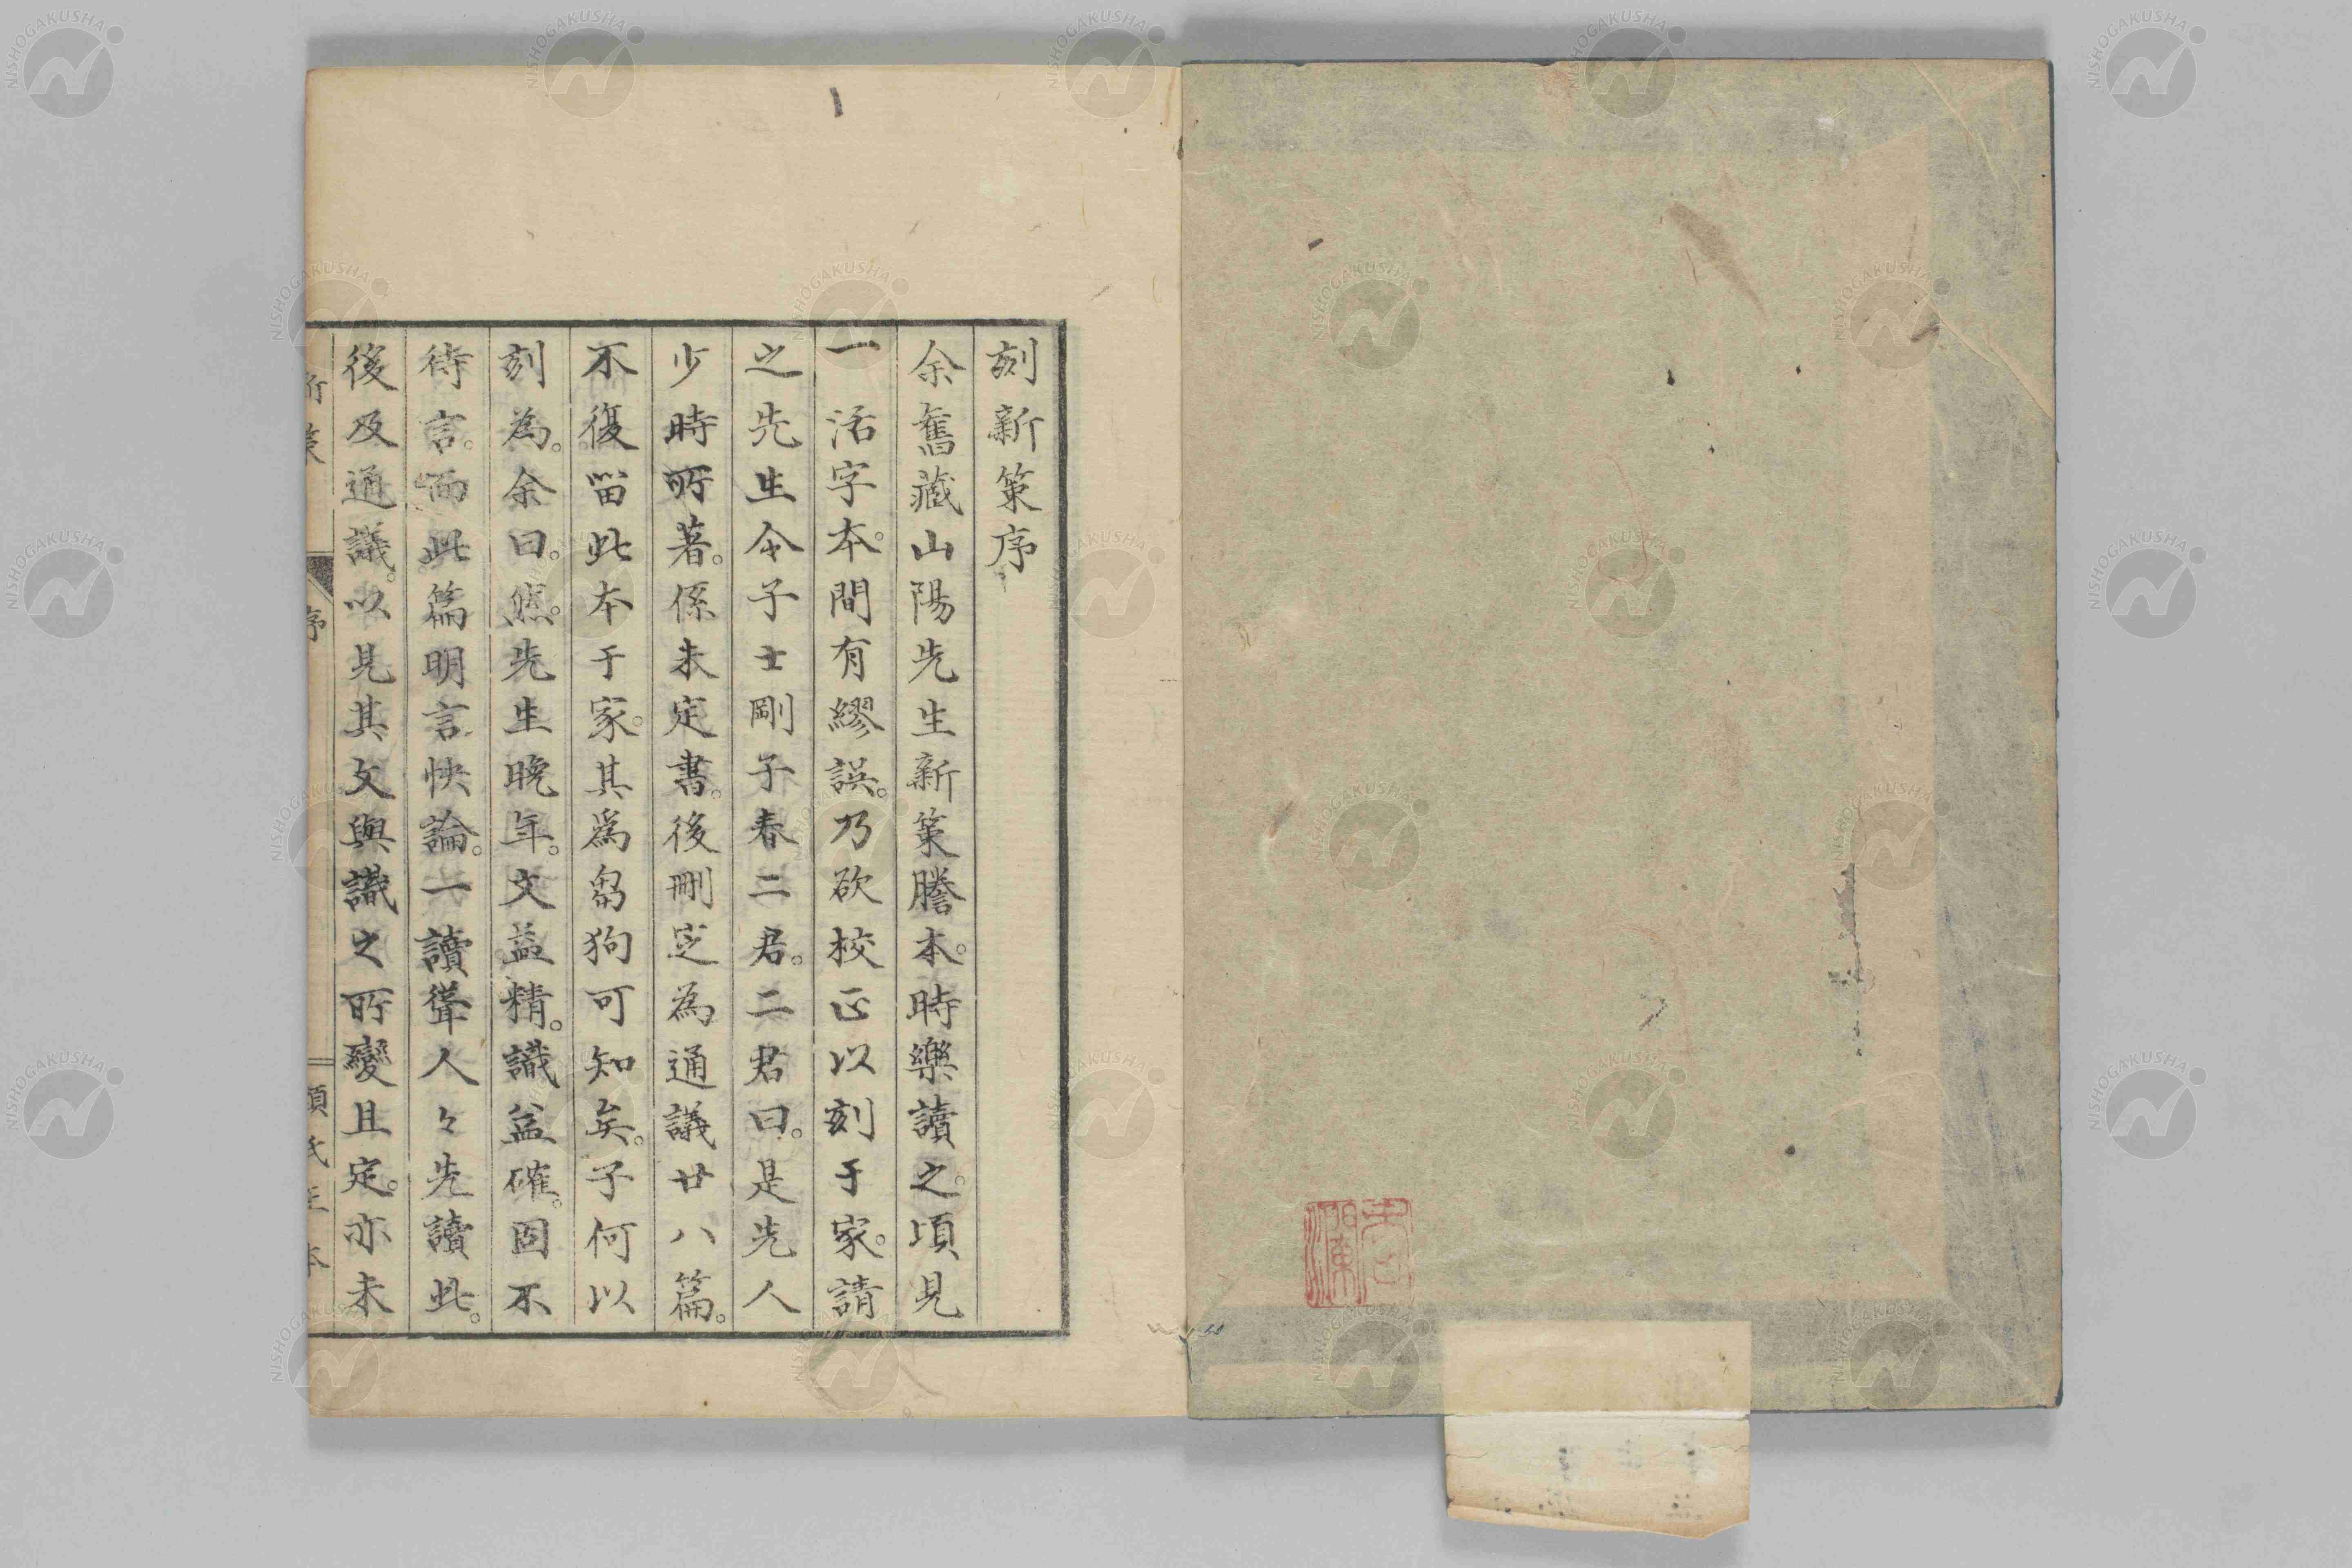 刻新策序
余舊藏山陽先生新策謄本。時樂讀之。頃見
一活字本。間有繆誤。乃欲校正以刻于家。請
之先生令子士剛子春二君。二君曰。是先人
少時所著。係未定書。後刪定為通議廿八篇。
不復畱此本于家。其爲芻狗可知矣。子何以
刻為。余曰。然。先生晚年。文益精。識益確。固不
待言。而此篇明言快論。一讀聳人々先讀此。
後及通議。以見其文與識之所變且定。亦未
新策
序
頼氏正本
NISHOGAKUSHA